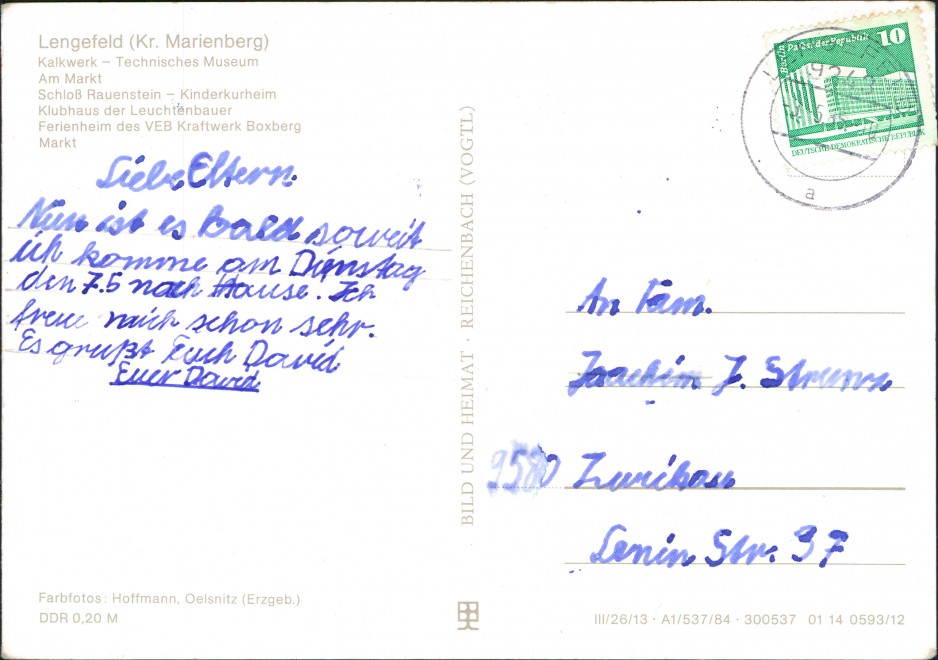 Lengefeld (Kr. Marienberg)
Kalkwerk – Technisches Museum
Am Markt
Schloß Rauenstein – Kinderkurheim
Klubhaus der Leuchtenbauer
Ferienheim des VEB Kraftwerk Boxberg
Markt
Liebe Eltern.
Nun ist es bald soweit
ich komme am Dienstag
den 7.5 nach Hause. Ich
freue mich schon sehr.
Es grußt Euch David
Euer David
Farbfotos: Hoffmann, Oelsnitz (Erzgeb.)
DDR 0,20 M
BILD UND HEIMAT · REICHENBACH (VOGTL)
Berlin Palast der Republik 10
DEUTSCHE DEMOKRATISCHE REPUBLIK
a
An Fam.
Joachim J.
9580 Zwickau
Lenin Str. 37
III/26/13 · A1/537/84 · 300537 01 14 0593/12